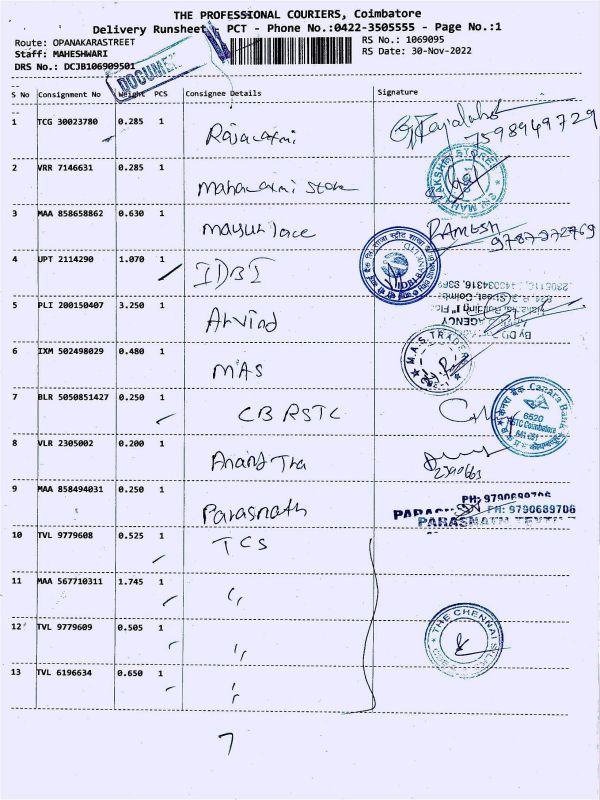 THE PROFESSIONAL COURIERS, Coimbatore
Delivery Runsheet - PCT - Phone No.:0422-3505555 - Page No.:1
Route: OPANAKARASTREET
RS No.: 1069095
Staff: MAHESHWARI
RS Date: 30-Nov-2022
DRS No.: DCJB106909501
DOCUMENT
S No Consignment No Weight PCS Consignee Details Signature
1 TCG 30023780 0.285 1 Rajalaxmi
7598949729
2 VRR 7146631 0.285 1 Mahalaxmi Store
SRI MAHALAKSHMI STORE
3 MAA 858658862 0.630 1 Mayuri lace RAMESH
9787272769
4 UPT 2114290 1.070 1 IDBI
5 PLI 200150407 3.250 1 Arvind
AGENCY
6 IXM 502498029 0.480 1 MAS
M.A.S. TRADE
7 BLR 5050851427 0.250 1 CB RSTC
केनरा बैंक Canara Bank
6520
RSTC Coimbatore
8 VLR 2305002 0.200 1 Anand Tha
9 MAA 858494031 0.250 1 Parasnath
PH: 9790689706
PH: 9790689706
PARASNATH TEXTILE
10 TVL 9779608 0.525 1 TCS
11 MAA 567710311 1.745 1 "
12 TVL 9779609 0.505 1 "
THE CHENNAI SILKS
13 TVL 6196634 0.650 1 "
7